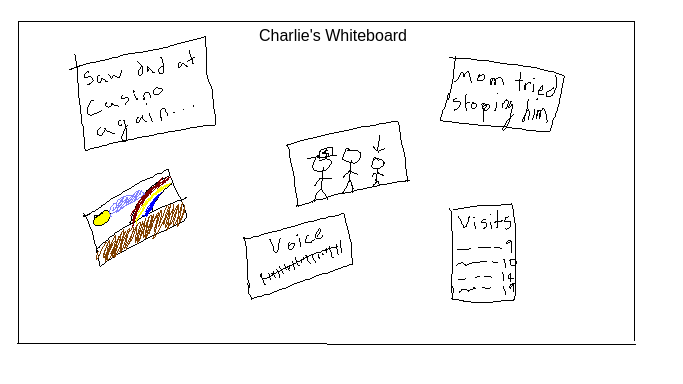 Charlie's Whiteboard
Saw dad at
Casino
again...
Mom tried
stoping him
Voice
Visits
9
10
14